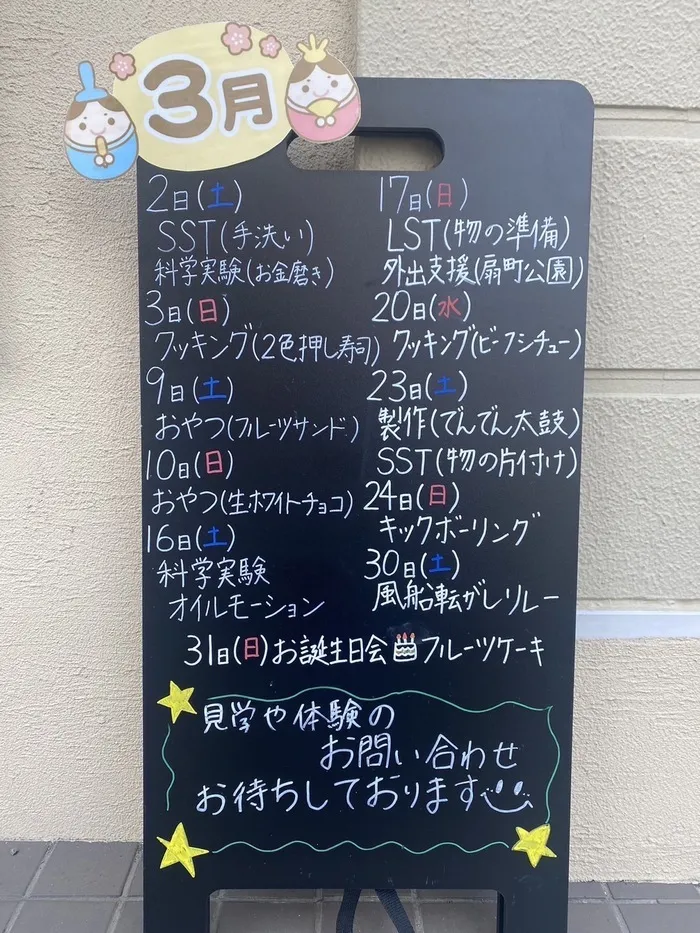 3月
2日(土)
SST(手洗い)
科学実験(お金磨き)
3日(日)
クッキング(2色押し寿司)
9日(土)
おやつ(フルーツサンド)
10日(日)
おやつ(生ホワイトチョコ)
16日(土)
科学実験
オイルモーション
17日(日)
LST(物の準備)
外出支援(扇町公園)
20日(水)
クッキング(ビーフシチュー)
23日(土)
製作(でんでん太鼓)
SST(物の片付け)
24日(日)
キックボーリング
30日(土)
風船転がしリレー
31日(日)お誕生日会 フルーツケーキ
見学や体験の
お問い合わせ
お待ちしております